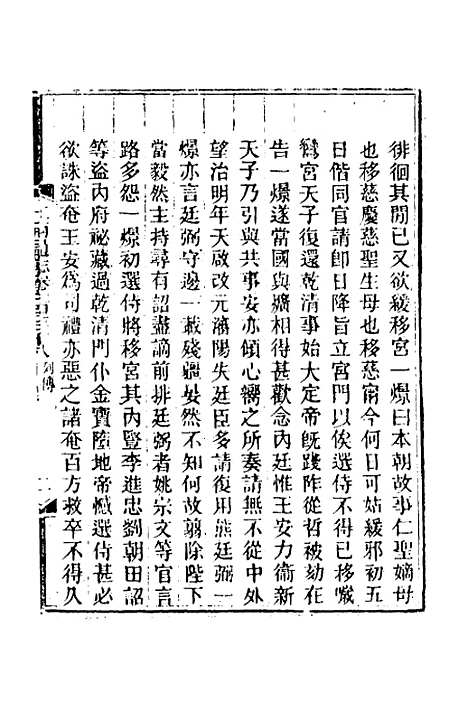 徘徊其間已又欲緩移宮一燝曰本朝故事仁聖嫡母
也移慈慶慈聖生母也移慈甯今何日可姑緩邪初五
日偕同官請卽日降旨立宮門以俟選侍不得已移噦
鸞宮天子復還乾清事始大定帝旣踐阼從哲被劾在
告一燝遂當國與爌相得甚歡念內廷惟王安力衞新
天子乃引與共事安亦傾心嚮之所奏請無不從中外
望治明年天啟改元瀋陽失廷臣多請復用熊廷弼一
燝亦言廷弼守邊一載殘疆晏然不知何故翦除陛下
當毅然主持尋有詔盡謫前排廷弼者姚宗文等官言
路多怨一燝初選侍將移宮其內豎李進忠劉朝田詔
等盜內府祕藏過乾清門仆金寶墮地帝憾選侍甚必
欲誅盜奄王安為司禮亦惡之諸奄百方救卒不得久
列傳